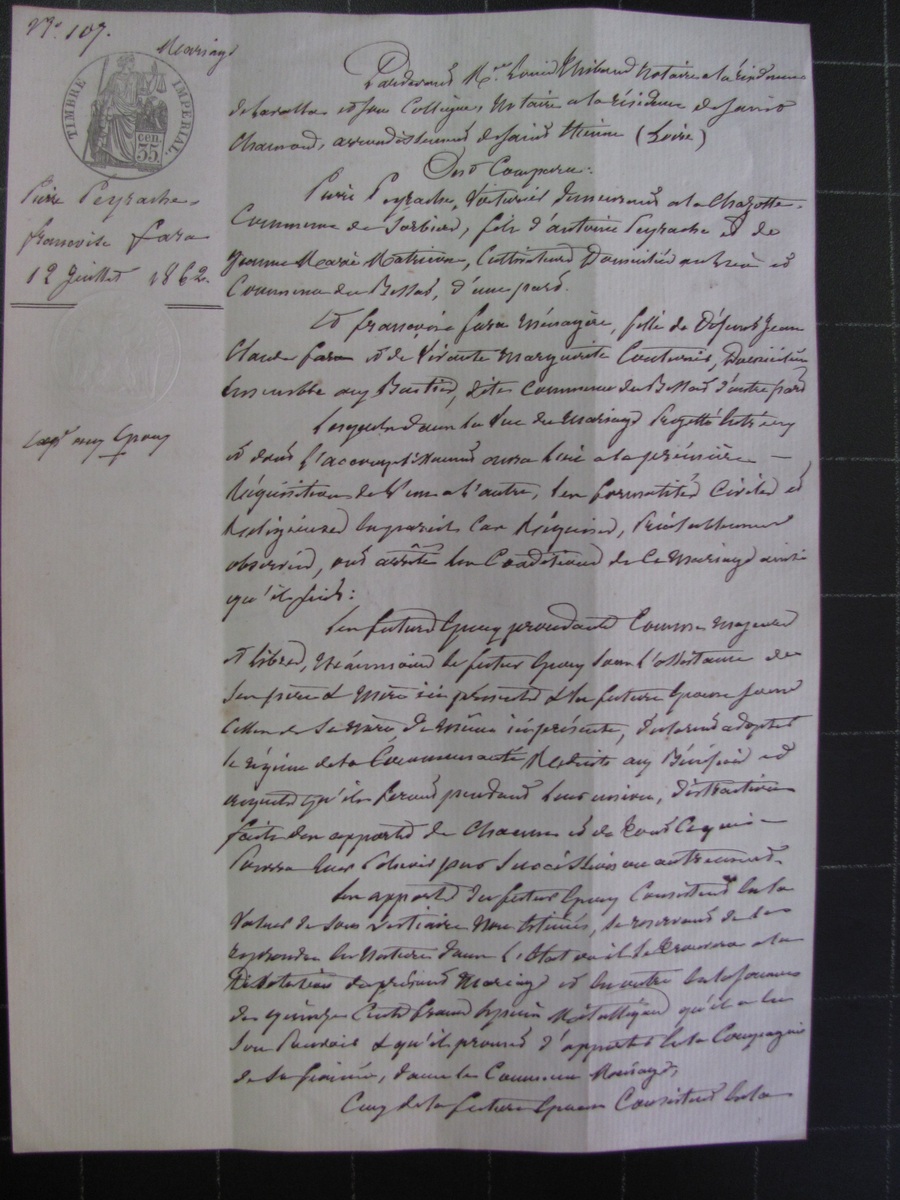 N° 107.
Mariage
TIMBRE IMPERIAL
35 cen.
Pierre Peyrache
françoise fara
12 Juillet 1862.
Expé aux Epoux
Pardevant Me Louis Thibaud Notaire a la résidence
de Lavalla et son Collègue, Notaire a la résidence de Saint
Chamond, arrondissement de Saint Etienne (Loire)
Ont Comparu.
Pierre Peyrache, Voiturier demeurant a la Chazotte
Commune de Sorbiers, fils d'antoine Peyrache et de
Jeanne Marie Matricon, Cultivateurs Domiciliés au et
Commune du Bessat, d'une part.
Et françoise fara Ménagère, fille de Défunt Jean
Claude fara et de Vivante Marguerite Couturier, Domiciliées
Ensemble aux Dites Commune du Bessat d'autre part
Lesquels dans la Vue du Mariage Projetté Entr'eux
et dont l'accomplissement aura lieu a la première
Réquisition de l'un a l'autre, les formalités Civiles et
Religieuses En pareil Cas Requises, Préalablement
observées, ont arrêté les Conditions de Ce Mariage ainsi
qu'il suit:
Les futurs Epoux procédant Comme Majeurs
et libres, Néanmoins le futur Epoux Sous l'assistance de
Ses père et Mère ici présents et la future Epouse Sous
Celle de Sa Mère, de même ici présente, Déclarent adopter
le régime de la Communauté Réduite aux Bénéfices et
acquets qu'ils feront pendant leur union, distraction
faite des apports de Chacun et de tout Ce qui
Pourra leur Echoir par Succession ou autrement.
Les apports du futur Epoux Consistent En la
Valeur de Son Vestiaire Non Estimé, Se réservant de le
reprendre En Nature dans l'Etat ou il Se trouvera a la
Dissolution du présent Mariage et En outre En la somme
de quinze Cents francs Espèces Métalliques qu'il a En
Son Pouvoir et qu'il promet d'apporter En la Compagnie
de Sa fiancée, dans le Commun Ménage,
Ceux de la future Epouse Consistent En la